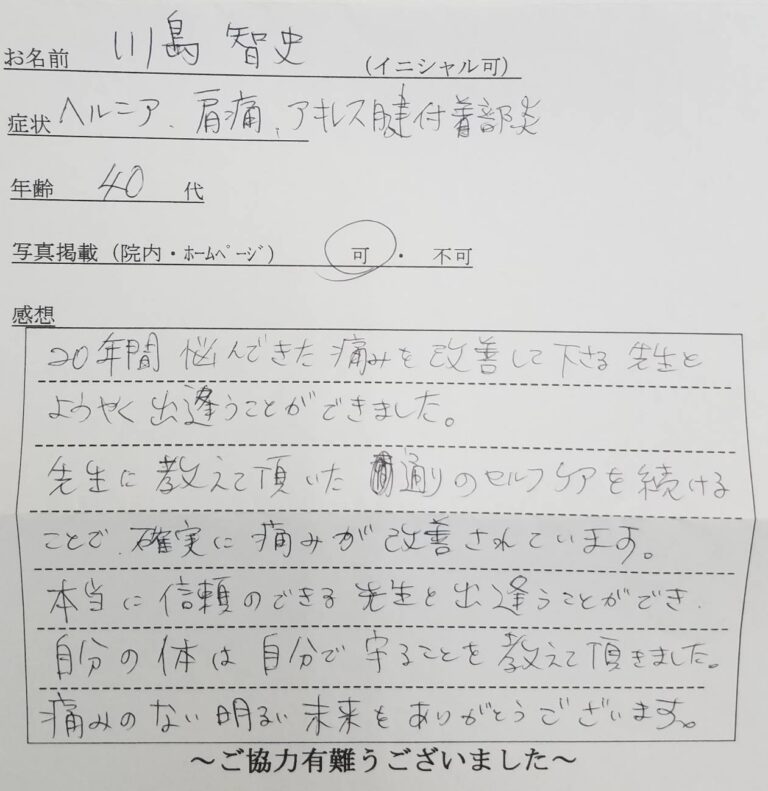 お名前 川島 智史 (イニシャル可)
症状 ヘルニア、肩痛、アキレス腱付着部炎
年齢 40 代
写真掲載（院内・ホームページ） 可 ・ 不可
感想
20年間 悩んできた 痛みを 改善して 下さる 先生と
ようやく 出逢うことができました。
先生に 教えて頂いた 通りのセルフケアを続ける
ことで、確実に 痛みが 改善されています。
本当に 信頼のできる 先生と 出逢うことができ、
自分の 体は 自分で 守ることを 教えて頂きました。
痛みのない 明るい 未来をありがとうございます。
～ご協力有難うございました～